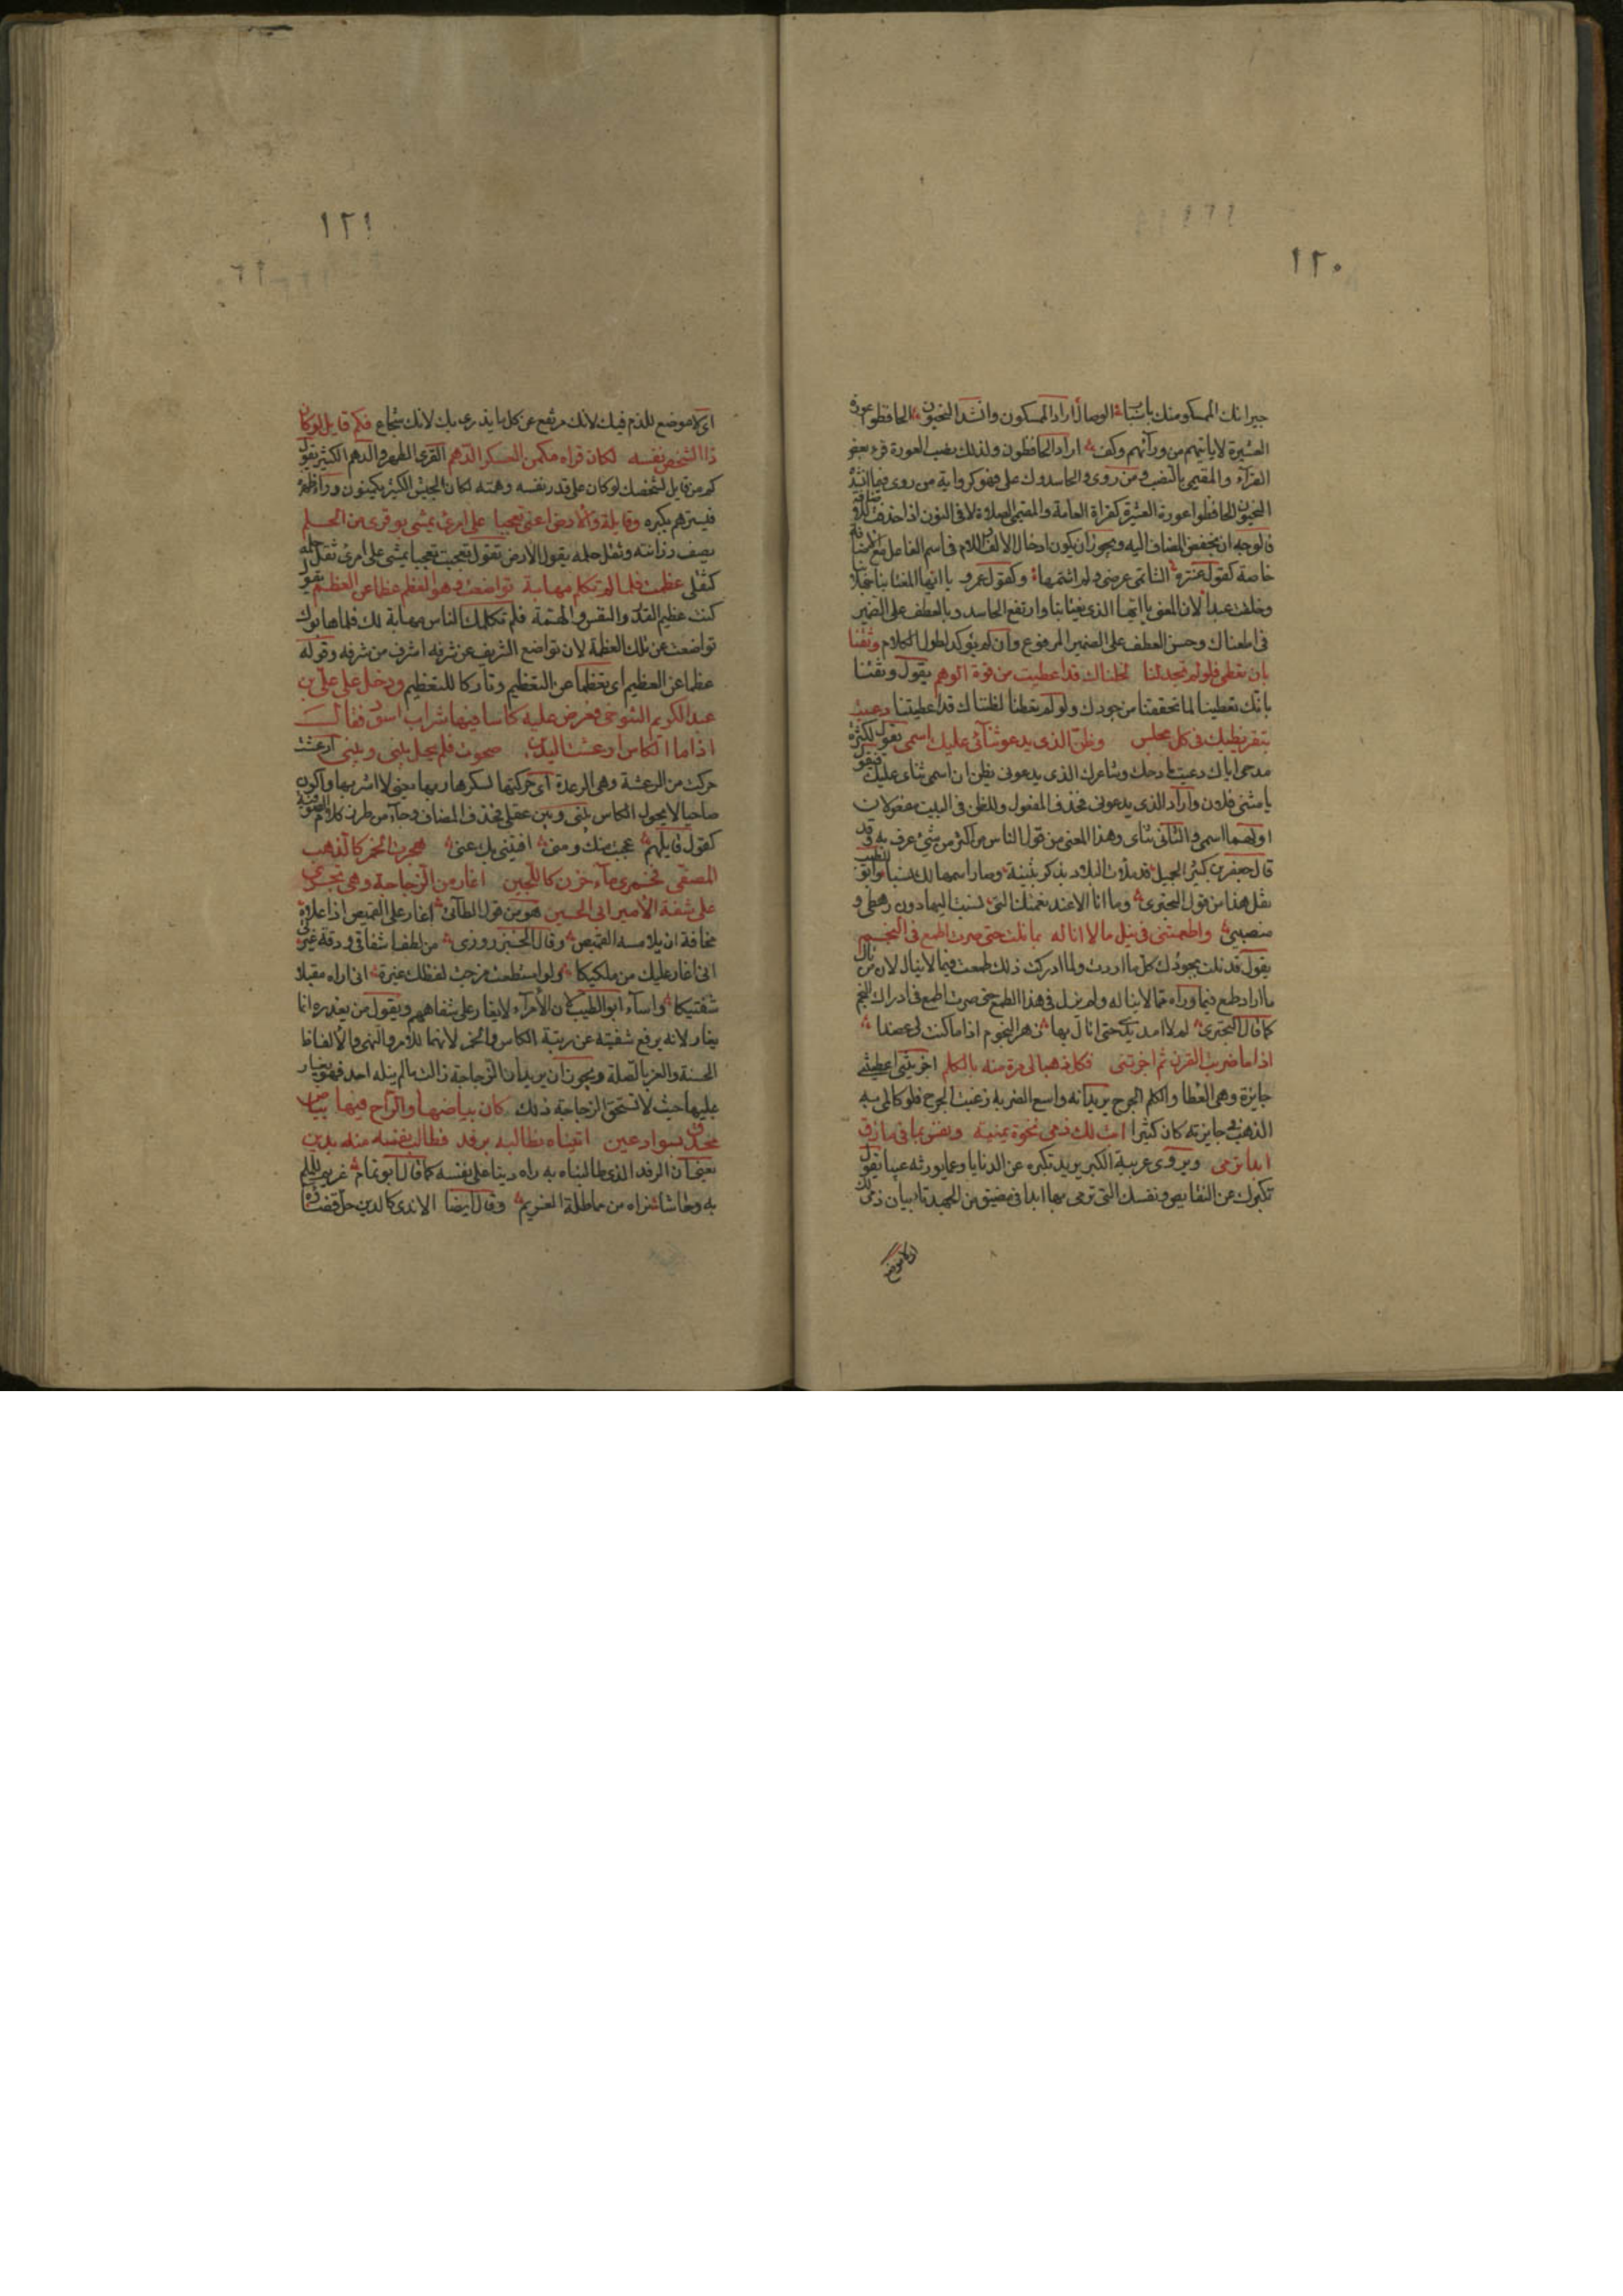 ١٢٠
جيرانك الممسكو منك باسباب الوصال اراد الممسكون وانشد النحويون الحافظوا عورة
العشيرة لا ياتيهم من ورآئهم وكف اراد الحافظون ولذلك نصب العورة قرء بعض
القرآء والمقيمى بالنصب ومن روى والحاسدوك على فهو كرواية من روى فيما انشده
النحويون الحافظوا عورة العشيرة كقراة العامة والمقيمى الصلاة لان النون اذا حذفت للاضافة
فالوجه ان يخفض المضاف اليه ويجوز ان يكون ادخال الالف واللام فى اسم الفاعل مع الاضافة
خاصة كقول عنترة الشاتمى عرضى ولم اشتمهما وكقول عمرو يا ايها المغتابنا جهلا بنا
وخلف عبدا لان المعنى يا ايها الذى يغتابنا وارتفع الحاسد وبالعطف على الضمير
فى اطعناك وحسن العطف على الضمير المرفوع وان لم يؤكد لطول الكلام وثقنا
بان تعطى فلو لم تجد لنا لخلناك قد اعطيت من قوة الوهم يقول وثقنا
بانك تعطينا لما تحققنا من جودك ولو لم تعطنا لظنناك قد اعطيتنا دعيت
بتقريظيك فى كل مجلس وظن الذى يدعو ثنآئى عليك اسمى يقول لكثرة
مدحى اياك دعيت مادحك وشاعرك الذى يدعونى يظن ان اسمى ثناى عليك فيقول
يا مثنى فلان واراد الذى يدعونى فحذف المفعول وللظن فى البيت مفعولان
اولهما اسمى والثانى ثناى وهذا المعنى من قول الناس من اكثر من شئ عرف به وقد
قال جعفر بن كثير لجميل قد ملأت البلاد بذكر بثينة وصار اسمها لك نسبا وابو الطيب
نقل هذا من قول البحترى وما انا الا عبد نعمتك التى نسبت اليها دون رهطى و
منصبى واطمعتنى فى نيل مالا اناله بما نلت حتى صرت اطمع فى النجم
يقول قد نلت بجودك كل ما اردت ولما ادركت ذلك طمعت فيما لا ينال لان من نال
ما اراد طمع فيما ورآه مما لا يناله ولم يزل فى هذا الطمع حتى صرت اطمع فى ادراك النجم
كما قال البحترى لم لا امد يدى حتى انال بها زهر النجوم اذا ما كنت لى عضدا
اذا ما ضربت القرن ثم اجزتنى فكل ذهبا لى مرة منه بالكلم اجزتنى اعطيتنى
جايزة وهى العطا والكلم الجرح يريد انه واسع الضربة رغيب الجرح فلو كال لى به
الذهب فى جايزته كان كثيرا ابت لك ذمى نخوة يمنية ونفس بها فى مازق
ابدا ترمى ويروى عربية الكبر يريد تكبره عن الدنايا وعما يورثه عيبا يقول
تكبرك عن النقايص ونفسك التى ترمى بها ابدا فى مضيق من الحرب تابيان ذمى لك
اى لا موضع
١٢١
اى لا موضع للذم فيك لانك مرتفع عن كل ما يذرى بك لانك شجاع فكم قايل لو كان
ذا الشخص نفسه لكان قراه مكمن العسكر الدهم القرى الظهر والدهم الكثير يقول
كم من قايل لشخصك لو كان على قدر نفسه وهمته لكان الجيش الكثير يكمنون وراء ظهره
فيسترهم بكبره وقايلة والارض اعنى تعجبا على امرئ يمشى بوقرى من الحلم
يصف رزانته وثقل حلمه يقول الارض تقول تعجبت تعجبا يمشى على امرئ ثقل حلمه
كثقلى عظمت فلما لم تكلم مهابة تواضعت وهو العظم عظما عن العظم يقول
كنت عظيم القدر والنفس والهمة فلم تكلمك الناس مهابة لك فلما هابوك
تواضعت عن تلك العظمة لان تواضع الشريف عن شرفه اشرف من شرفه وقوله
عظما عن العظيم اى تعظما عن التعظيم وتاركا للتعظيم ودخل على على بن
عبد الكريم التنوخى فعرض عليه كاسا فيها شراب اسود فقال
اذا ما الكاس ارعشت اليدين صحوت فلم يحل بينى وبينى ارعشت
حركت من الرعشة وهى الرعدة اى حركتها لسكرها ربها يعنى لا اشربها واكون
صاحيا لا يحول الكاس بينى وبين عقلى فحذف المضاف وجآء من طرز كلام الصوفية
كقول قايلهم عجبت منك ومنى افنيتنى بك عنى هجرت الخمر كالذهب
المصفى فخمرى مآء مزن كاللجين اغار من الزجاجة وهى تجرى
على شفة الامير ابى الحسين هو من قول الطائى اغار على القميص اذا علاه
مخافة ان يلامسه القميص وقال الخبزروزى من لطف اشفاقى ودقة غيرتى
انى اغار عليك من ملكيكا ولو استطعت جرحت لفظك غيرة انى اراه مقبلا
شفتيكا واسآء ابو الطيب لان الامرآء لا يغار على شفاههم ويقول من يعذره انما
يغار لانه يرفع شفتيه عن رتبة الكاس والخمر لانهما للامر والنهى والالفاظ
الحسنة والعز بالصلة ويجوز ان يريد ان الزجاجة نالت ما لم ينله احد فهو يغار
عليها حيث لا تستحق الزجاجة ذلك كان بياضها والراح فيها بياض
محدق بسواد عين اتيناه نطالبه برفد فطالب نفسه منه بدين
يعنى ان الرفد الذى طالبناه به راه دينا على نفسه كما قال ابو تمام غريم للملم
به وحاشا نداه من مماطلة الغريم وقال ايضا الاندى كالدين حل قضاوه